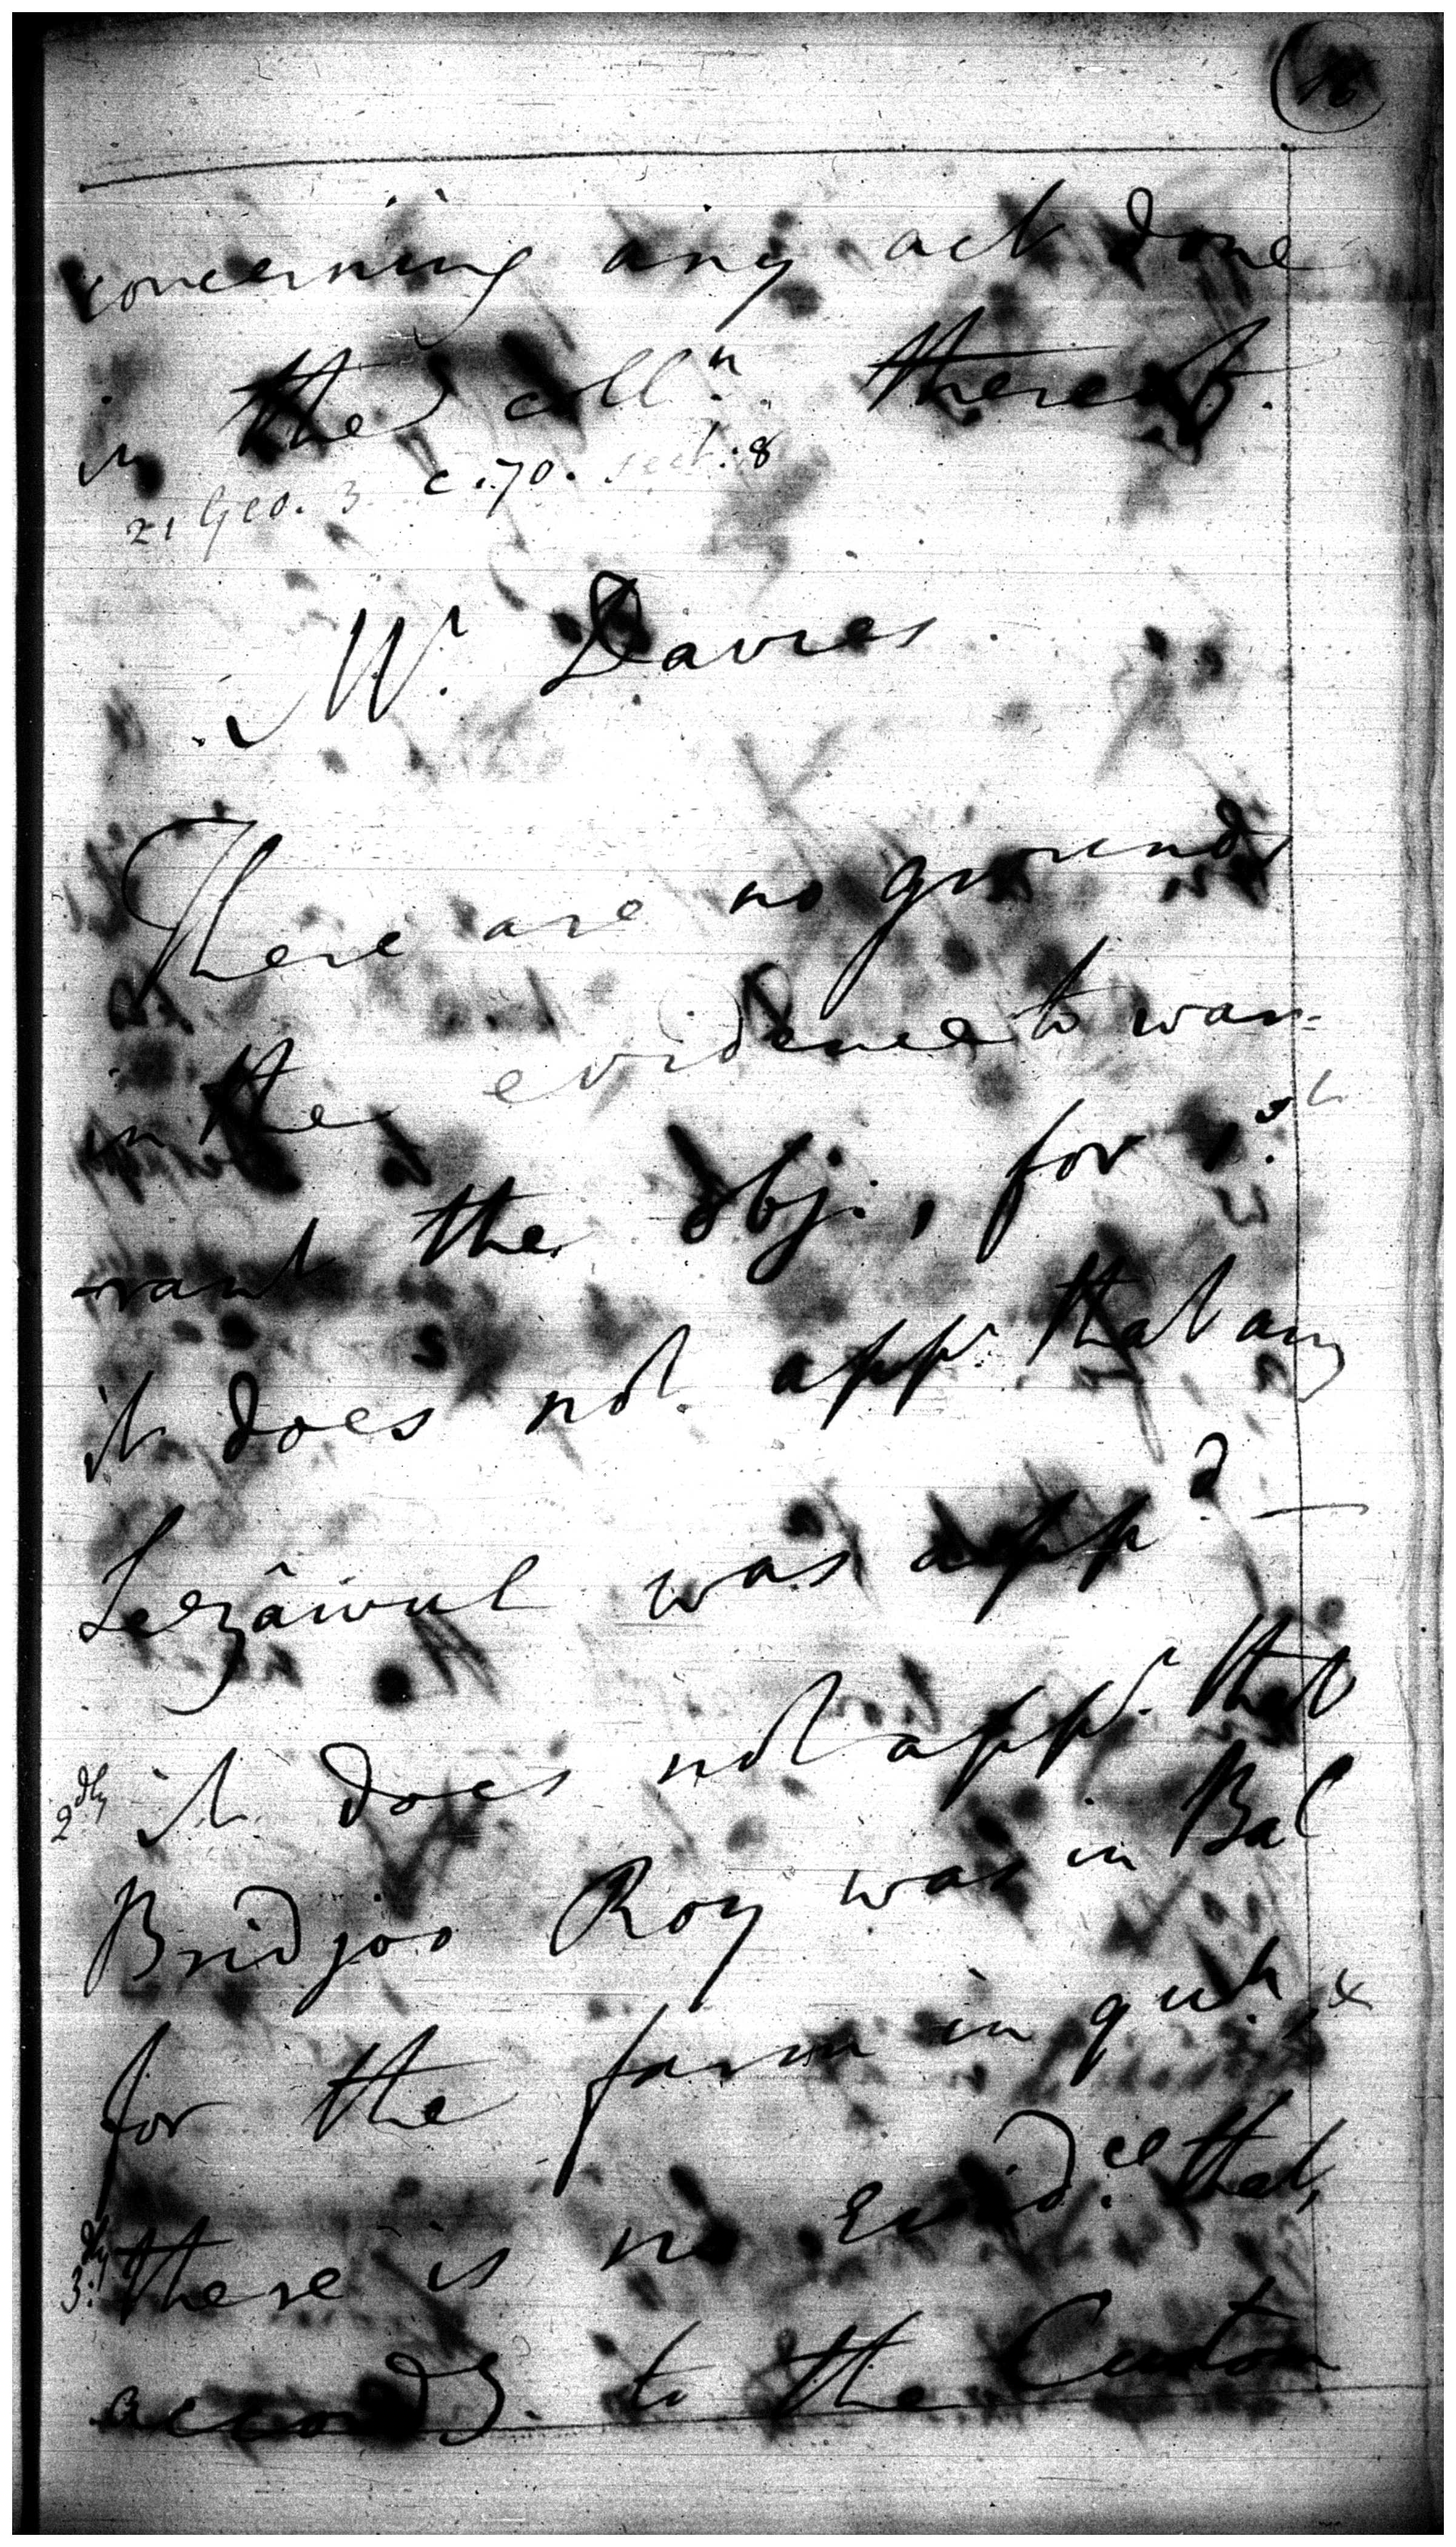 16
concerning any act done
in the coll.n thereof.
21 Geo. 3. c. 70. sect. 8
Mr. Davies.
There are no grounds
in the evidence to war=
rant the obj., for 1.st
it does not app.r that any
Sezâwul was app.d —
2.dly it does not app.r that
Bridjoo Roy was in Bal
for the farm in qu.n, &
3.dly there is no Evid.ce that,
accord.g to the Custom